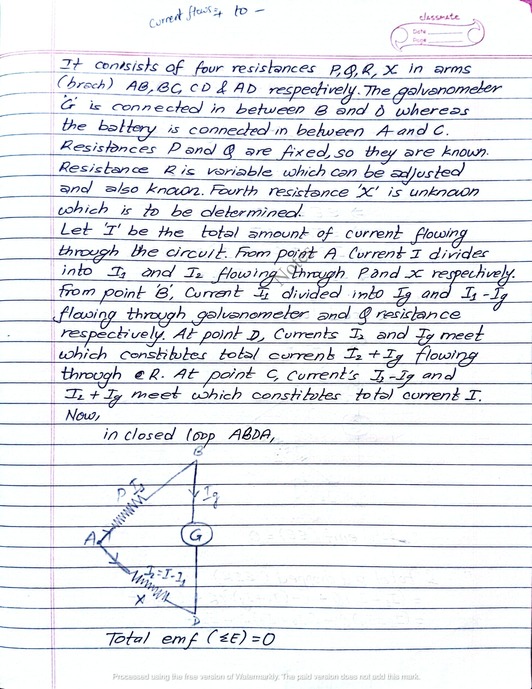 Current flows + to -
classmate
Date
Page
It consists of four resistances P,Q,R, X in arms
(brach) AB, BC, CD & AD respectively. The galvanometer
'G' is connected in between B and D whereas
the battery is connected in between A and C.
Resistances P and Q are fixed, so they are known.
Resistance R is variable which can be adjusted
and also known. Fourth resistance 'X' is unknown
which is to be determined.
Let 'I' be the total amount of current flowing
through the circuit. From point A Current I divides
into I1 and I2 flowing through P and X respectively.
From point 'B', Current I1 divided into Ig and I1-Ig
flowing through galvanometer and Q resistance
respectively. At point D, Currents I2 and Ig meet
which constitutes total current I2 + Ig flowing
through R. At point C, Current's I1-Ig and
I2 + Ig meet which constitutes total current I.
Now,
in closed loop ABDA,
B
P I1
Ig
A
G
I2=I-I1
X
D
Total emf (≤E)=0
Processed using the free version of Watermarkly. The paid version does not add this mark.